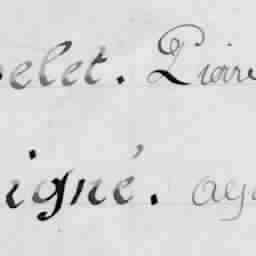 elet. Pierre
igné. ay